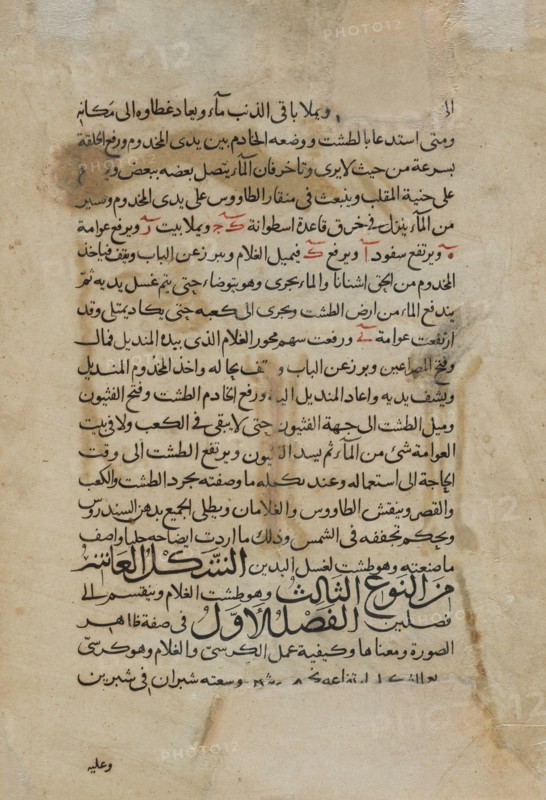 ويملا باقى الذنب ماء ويعاد غطاوه الى مكانه
ومتى استدعا بالطشت ووضعه الخادم بين يدى المخدوم ورفع الحلقة
بسرعة من حيث لا يرى وتاخر فان الماء يتصل بعضه ببعض
على حنية المقلب وينبعث فى منقار الطاووس على يدى المخدوم
من الماء ينزل فى خرق قاعدة اسطوانة ويملا بيت ويرفع عوامة
ه ويرتفع سفود ا ويرفع ك فيميل الغلام ويبرز عن الباب ويقف فياخذ
المخدوم من الحق اشنانا والماء يجرى وهو يتوضاء حتى يتم غسل يديه ثم
يندفع الماء من ارض الطشت ويجرى الى كعبه حتى يكاد يمتلى وقد
ارتفعت عوامة ورفعت سهم محور الغلام الذى بيده المنديل فمال
وفتح المصراعين وبرز عن الباب بحاله واخذ المخدوم المنديل
وينشف يديه واعاد المنديل ورفع الخادم الطشت وفتح الفثيون
وميل الطشت الى جهة الفثيون حتى لا يبقى فى الكعب ولا فى بيت
العوامة شئ من الماء ثم يسد ويرتفع الطشت الى وقت
الحاجة الى استعماله وعند تكمله ما وصفته يجرد الطشت والكعب
والقصر وينقش الطاووس والغلامان ويطلى الجميع بدهن السندروس
ويحكم تجفيفه فى الشمس وذلك ما اردت ايضاحه جليا واصف
ما صنعته وهو طشت لغسل اليدين الشكل العاشر
من النوع الثالث وهو طشت الغلام وينقسم الى
فصلين الفصل الاول فى صفة ظاهر
الصورة ومعناها وكيفية عمل الكرسى والغلام وهو كرسى
وسعته شبران فى شبرين
وعليه
PHOTO12
PHOTO12
PHOTO12
PHOTO12